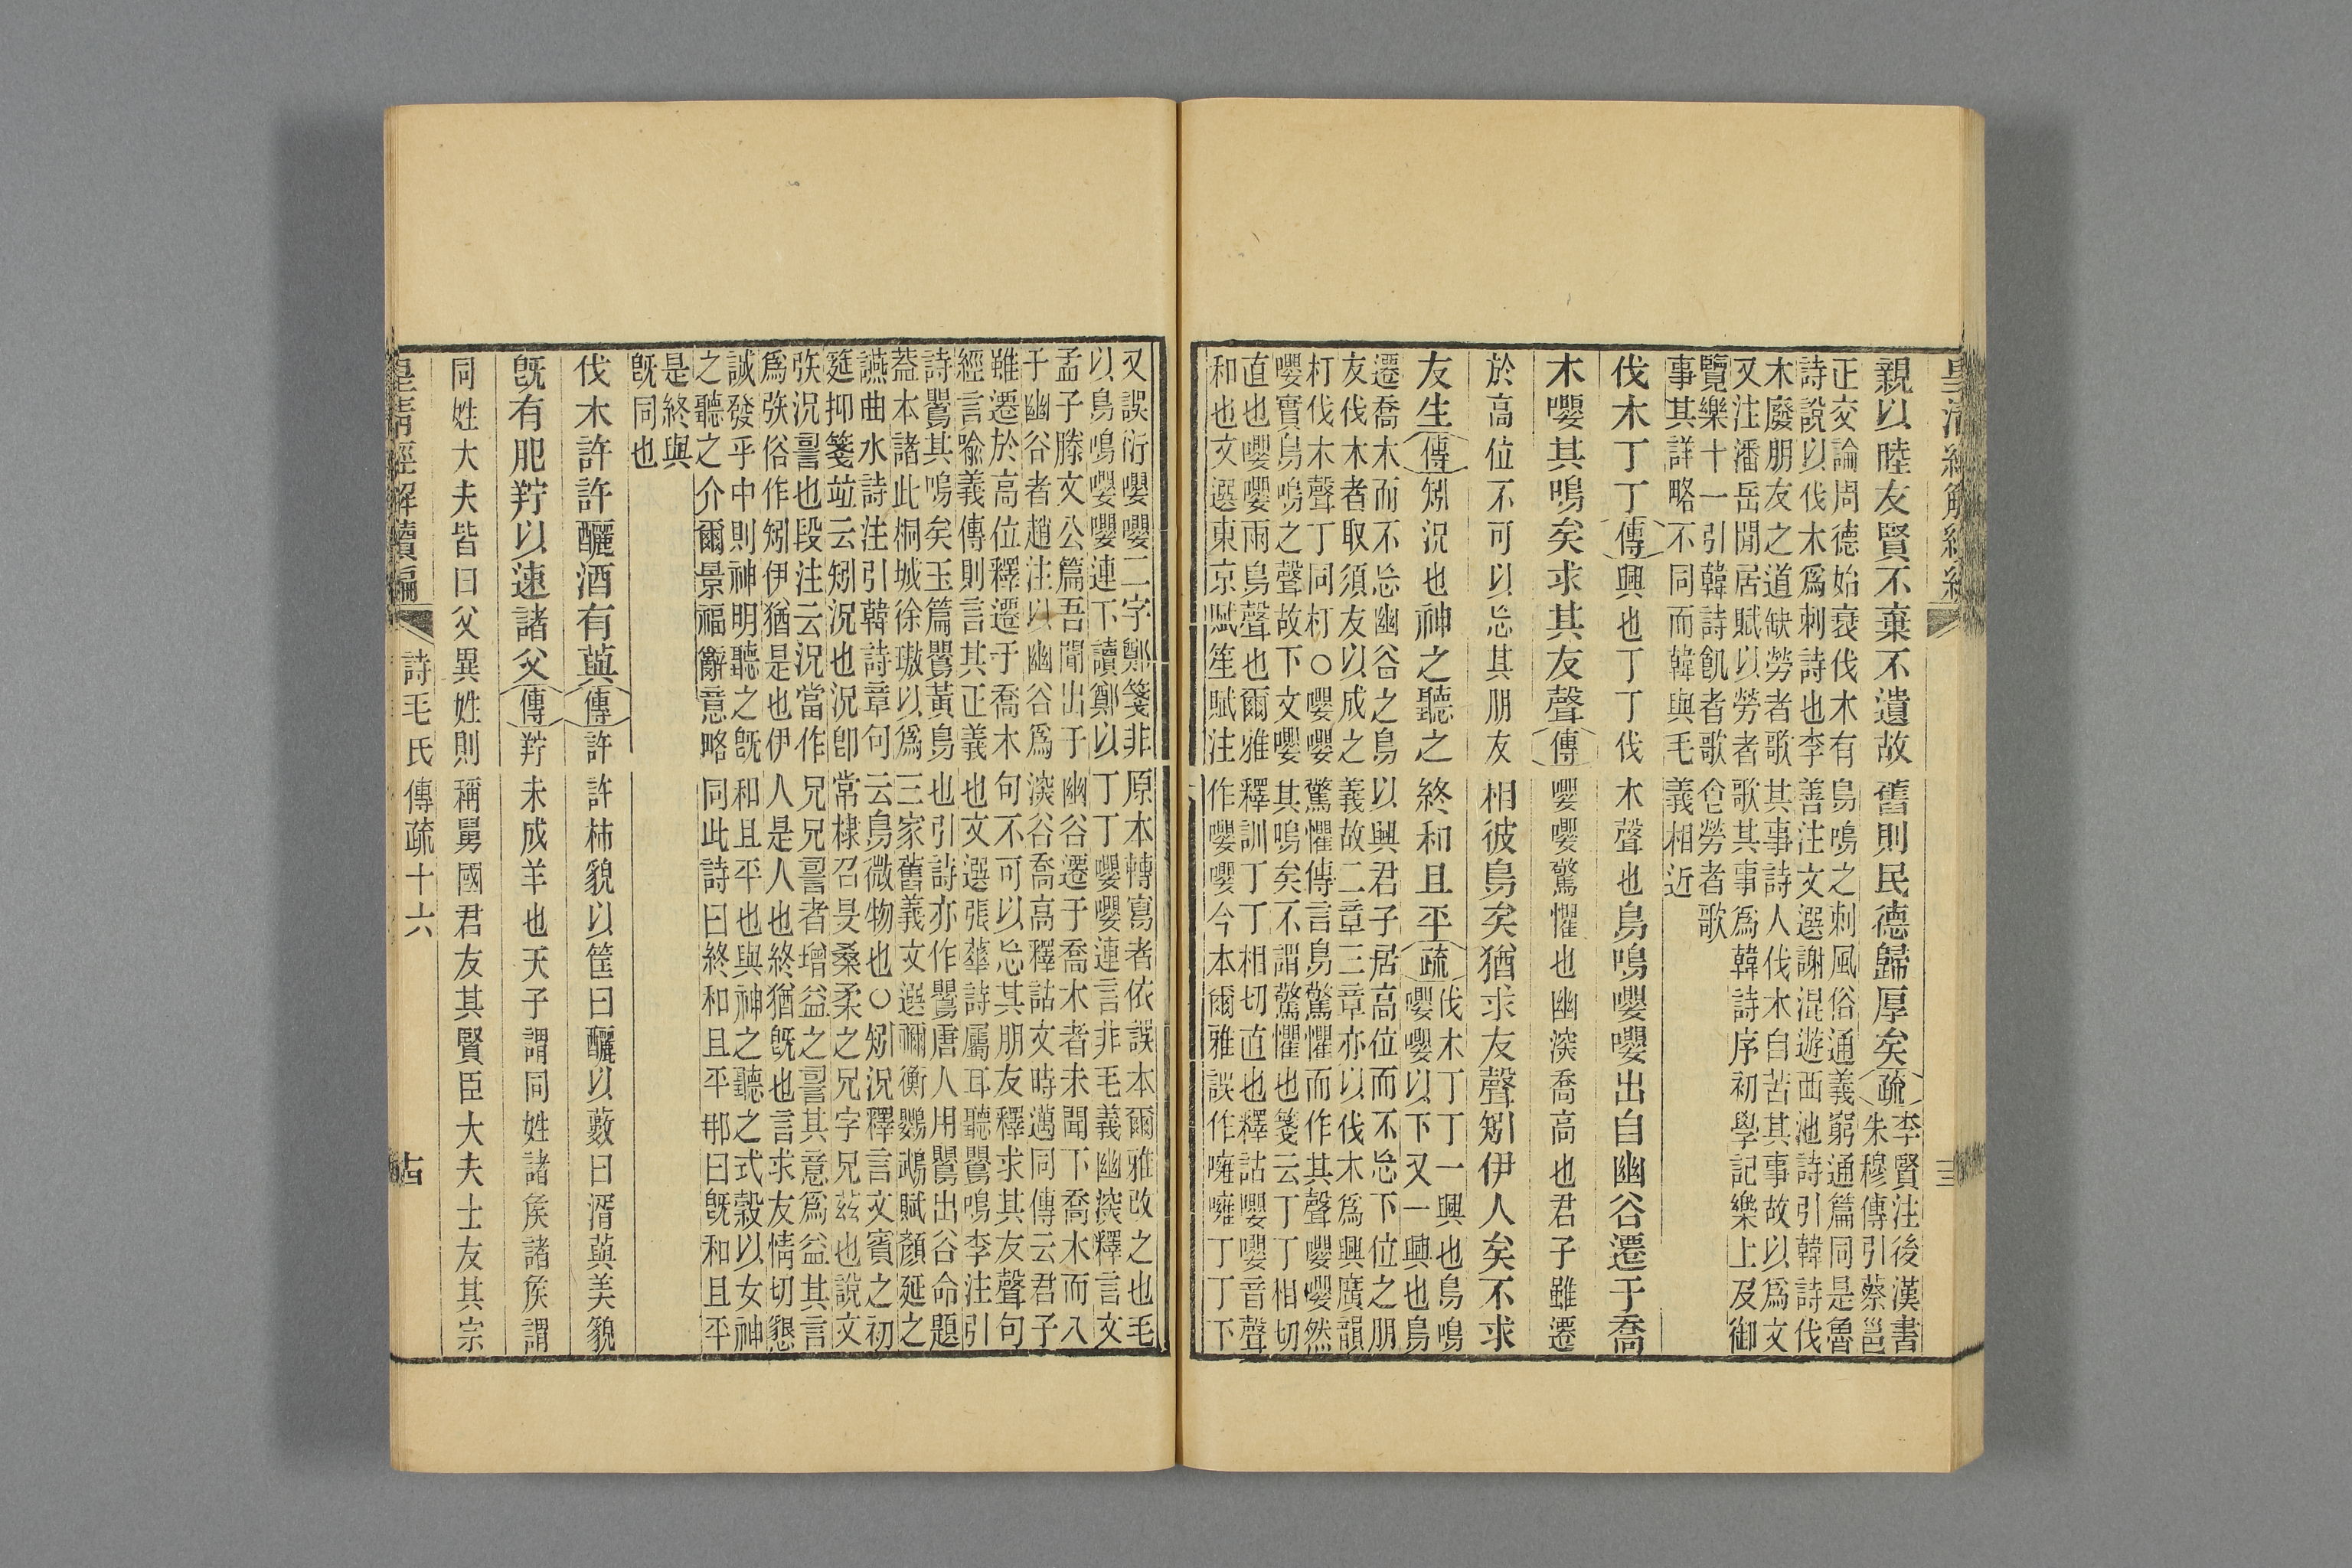 親以睦友賢不棄不遺故舊則民德歸厚矣疏李賢注後漢書
朱穆傳引蔡邕
正交論周德始衰伐木有鳥鳴之刺風俗通義窮通篇同是魯
詩說以伐木爲刺詩也李善注文選謝混遊西池詩引韓詩伐
木廢朋友之道缺勞者歌其事詩人伐木自苦其事故以爲文
又注潘岳閒居賦以勞者歌其事爲韓詩序初學記樂上及御
覽樂十一引韓詩飢者歌食勞者歌
事其詳略不同而韓與毛義相近
伐木丁丁傳興也丁丁伐木聲也鳥鳴嚶嚶出自幽谷遷于喬
木嚶其鳴矣求其友聲傳嚶嚶驚懼也幽深喬高也君子雖遷
於高位不可以忘其朋友相彼鳥矣猶求友聲矧伊人矣不求
友生傳矧況也神之聽之終和且平疏伐木丁丁一興也鳥鳴
嚶嚶以下又一興也鳥
遷喬木而不忘幽谷之鳥以興君子居高位而不忘下位之朋
友伐木者取須友以成之義故二章三章亦以伐木爲興廣韻
朾伐木聲丁同朾○嚶嚶驚懼傳言鳥驚懼而作其聲嚶嚶然
嚶實鳥鳴之聲故下文嚶其鳴矣不謂驚懼也箋云丁丁相切
直也嚶嚶兩鳥聲也爾雅釋訓丁丁相切直也釋詁嚶嚶音聲
和也文選東京賦笙賦注作嚶嚶今本爾雅誤作噰噰丁丁下
又誤衍嚶嚶二字鄭箋非原本轉寫者依誤本爾雅改之也毛
以鳥鳴嚶嚶連下讀鄭以丁丁嚶嚶連言非毛義幽深釋言文
孟子滕文公篇吾聞出于幽谷遷于喬木者未聞下喬木而入
于幽谷者趙注以幽谷爲深谷喬高釋詁文時邁同傳云君子
雖遷於高位釋遷于喬木句不可以忘其朋友釋求其友聲句
經言喩義傳則言其正義也文選張華詩屬耳聽鸎鳴李注引
詩鸎其鳴矣玉篇鸎黃鳥也引詩亦作鸎唐人用鸎出谷命題
葢本諸此桐城徐璈以爲三家舊義文選禰衡鸚鵡賦顏延之
讌曲水詩注引韓詩章句云鳥微物也○矧況釋言文賓之初
筵抑箋竝云矧況也況卽常棣召旻桑柔之兄字兄茲也說文
㢮況䛐也段注云況當作兄兄䛐者增益之䛐其意爲益其言
爲㢮俗作矧伊猶是也伊人是人也終猶旣也言求友情切懇
誠發乎中則神明聽之旣和且平也與神之聽之式穀以女神
之聽之介爾景福辭意略同此詩曰終和且平那曰旣和且平
是終與
旣同也
伐木許許釃酒有藇傳許許柹貌以筐曰釃以藪曰湑藇美貌
旣有肥羜以速諸父傳羜未成羊也天子謂同姓諸矦諸矦謂
同姓大夫皆曰父異姓則稱舅國君友其賢臣大夫士友其宗
皇清經解續編 詩毛氏傳疏十六